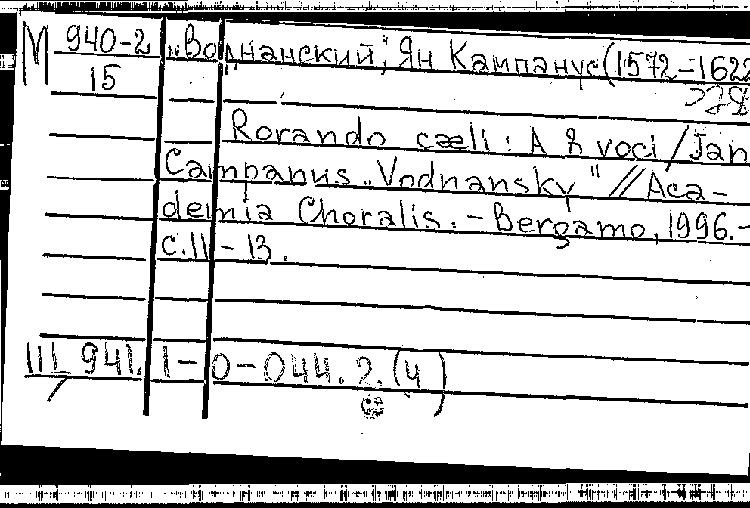 М 940-2 „Воднанский," Ян Кампанус (1572-1622
15
Rorando cæli : A 8 voci / Jan
Campanus „Vodnansky" // Aca-
demia Choralis. - Bergamo, 1996. -
С. 11 - 13.
III 941. 1-0-044.2.(4)